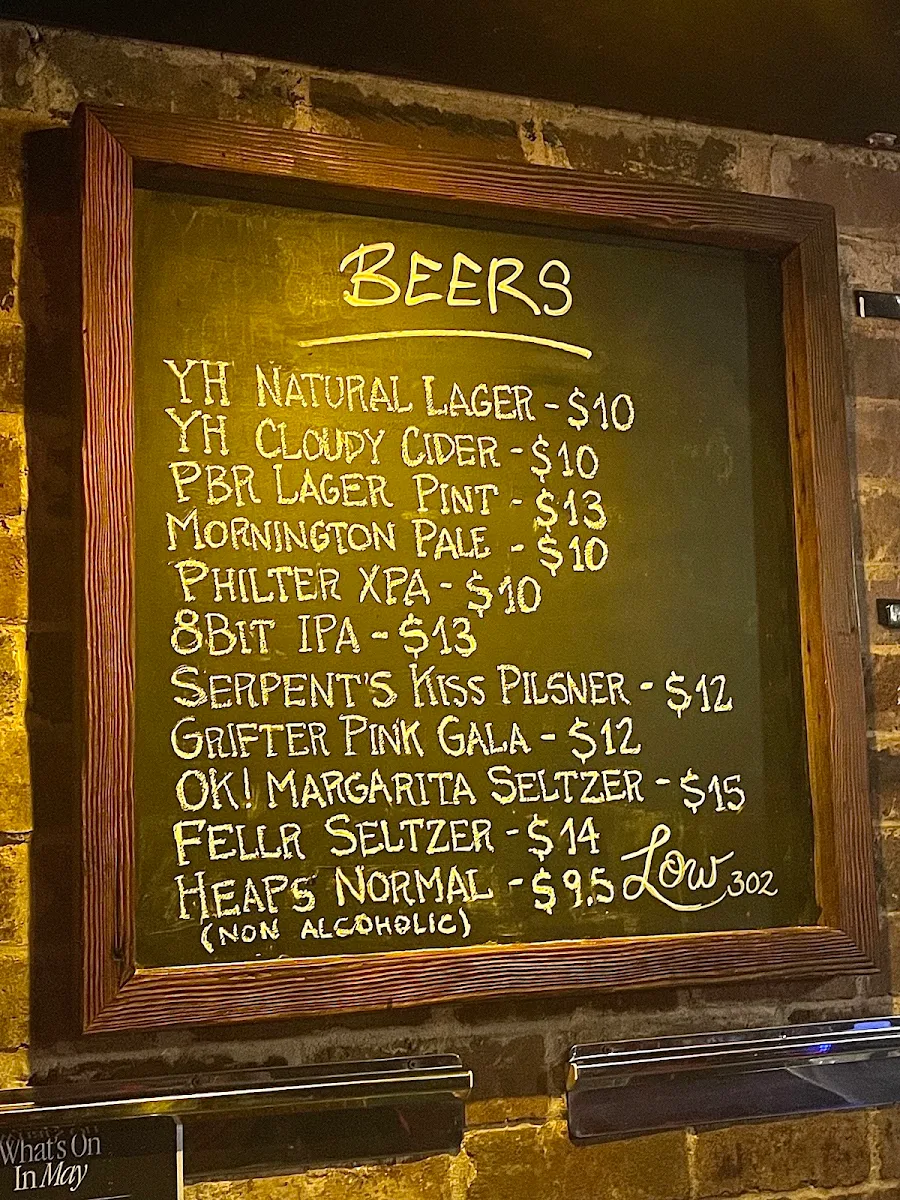 BEERS
YH NATURAL LAGER - $10
YH CLOUDY CIDER - $10
PBR LAGER PINT - $13
MORNINGTON PALE - $10
PHILTER XPA - $10
8BIT IPA - $13
SERPENT'S KISS PILSNER - $12
GRIFTER PINK GALA - $12
OK! MARGARITA SELTZER - $15
FELLR SELTZER - $14
HEAPS NORMAL - $9.5
(NON ALCOHOLIC)
Low 302
What's On
In May